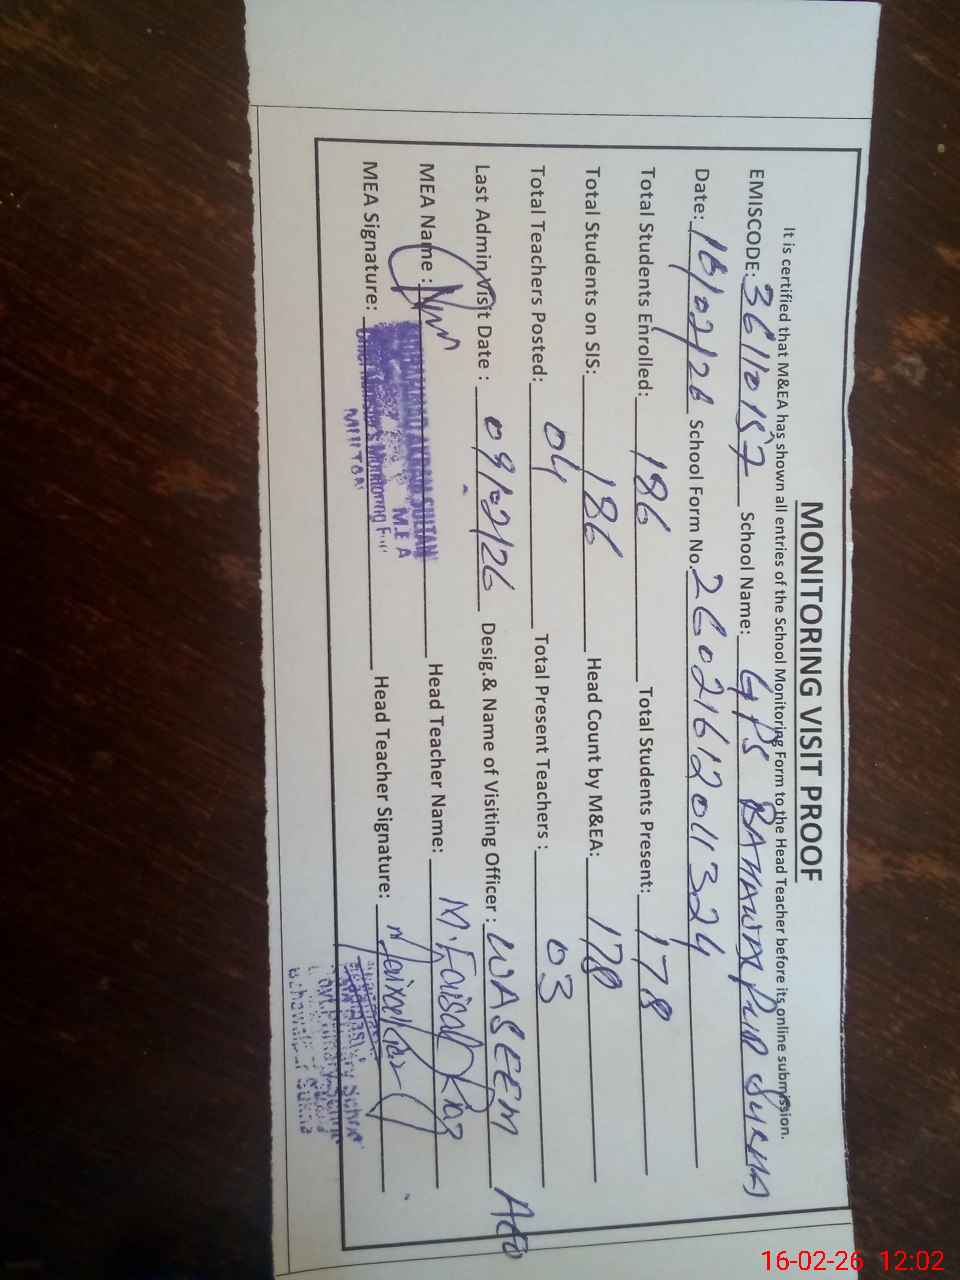 MONITORING VISIT PROOF
It is certified that M&EA has shown all entries of the School Monitoring Form to the Head Teacher before its online submission.
EMISCODE: 36110157 School Name: GPS BAHAWAL PUR SUKHA
Date: 16/02/26 School Form No. 26021612011324
Total Students Enrolled: 186 Total Students Present: 178
Total Students on SIS: 186 Head Count by M&EA: 178
Total Teachers Posted: 04 Total Present Teachers : 03
Last Admin Visit Date : 09/02/26 Desig.& Name of Visiting Officer : WASEEM AEO
MEA Name : Head Teacher Name: M. Faisal
SULTAN
M.E.A
MEA Signature: Head Teacher Signature:
Monitoring
MULTAN
16-02-26 12:02